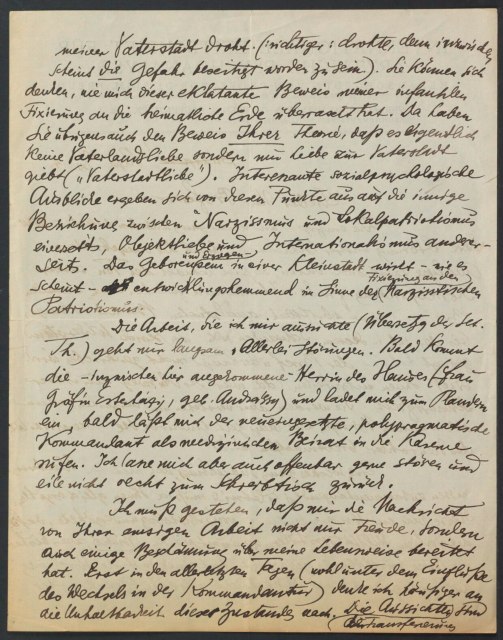 meiner Vaterstadt droht. (richtiger: drohte, denn inzwischen
scheint die Gefahr beseitigt worden zu sein). Sie können sich
denken, wie mich dieser eklatante Beweis meiner infantilen
Fixierung an die heimatliche Erde überrascht hat. Da haben
Sie übrigens auch den Beweis Ihrer These, daß es eigentlich
keine Vaterlandsliebe sondern nur Liebe zur Vaterstadt
giebt („Vaterstadtliebe“). Interessante sozialpsychologische
Ausblicke ergeben sich von diesem Punkte aus auf die innige
Beziehung zwischen Narzissmus und Lokalpatriotismus
einerseits, Objektliebe und Internationalismus anderer-
seits. Das Geboren und Erzogensein in einer Kleinstadt wirkt – wie es
scheint – entwicklungshemmend im Sinne der Fixierung an den Narzisstischen
Patriotismus.
Die Arbeit, die ich mir aussuchte (Übersetzg der Sex.
Th.) geht nur langsam. Allerlei Störungen. Bald kommt
die – inzwischen hier angekommene Herrin des Hauses (Frau
Gräfin Esterhazy, geb. Andrássy) und ladet mich zum Plaudern
ein, bald läßt mich der neueingesetzte, polypragmatische
Kommandant als medizinischen Beirat in die Kaserne
rufen. Ich lasse mich aber auch offenbar gerne stören und
eile nicht recht zum Schreibtisch zurück.
Ich muß gestehen, daß mir die Nachricht
von Ihrer emsigen Arbeit nicht nur Freude, sondern
auch einige Beschämung über meine Lebensweise bereitet
hat. Erst in den allerletzten Tagen (wohl unter dem Einfluße
des Wechsels in der Kommandantur) denke ich häufiger an
die Unhaltbarkeit dieses Zustandes nach. Die Aussichten